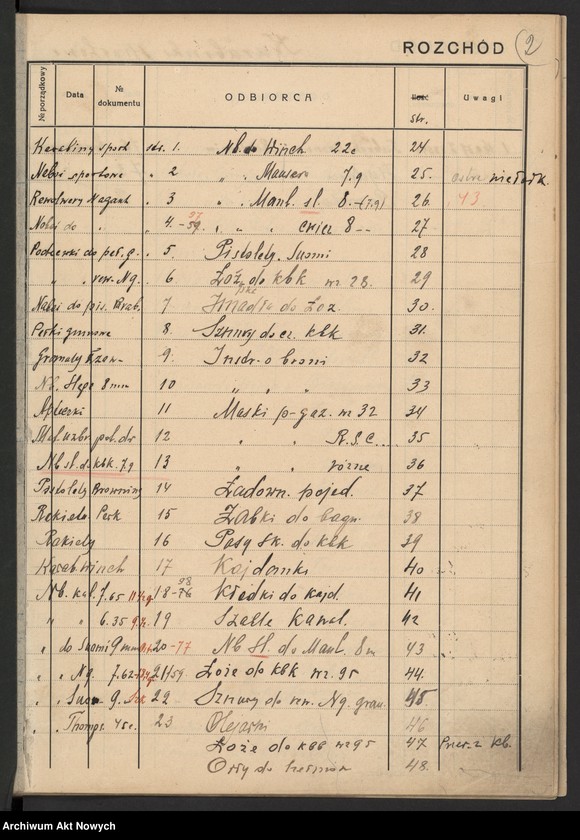 ROZCHÓD 2
№ porządkowy Data № dokumentu ODBIORCA Ilość str. Uwagi
Karabiny sport str. 1. Nb. do Winch 22c 24
Naboi sportowe " 2 " " Mausera 7.9 25. ostre
Rewolwery Nagant " 3 " " Manl. sl. 8.-(7.9) 26. 43
Naboi do " " 4. -59. 97 " " " ćwicz 8 -- 27
do pet. g. " 5. Pistolety Suomi 28
" " rew. Ng. " 6 Łoż do kbk wz. 28. 29
Naboi do pis. 7 do Łoż. 30.
gumowe 8 Sznury do cz. kbk 31.
Granaty Łzaw- 9. Instr. o broni 32
Nb. 8 mm 10 " " " 33
Apteczki 11 Maski p-gaz. wz 32 34
12 " " R.S.C... 35
Nb sl. do kbk. 7.9 13 " " różne 36
Pistolety Browning 14 Ładown. pojed. 37
Rakieto. 15 Żabki do bagn. 38
Rakiety 16 Pasy sk. do kbk 39
Karab. Winch 17 Kajdanki 40
Nb. kal. 7.65 18-76 98 Kłódki do kajd. 41
" " 6.35 19 Szelki Kawal. 42
" do Suomi 9 mm 20-77 Nb sl. do Manl. 8 m 43
" " Ng. 7.62 21/59 Łoże do kbk wz. 95 44.
" " Suo- 9. 22 Sznury do rew. Ng. gran. 45
" " Thomps. 45c. 23 Olejarki 46
Łoże do kbk wz 95 47.
do hełmów 48.
Archiwum Akt Nowych